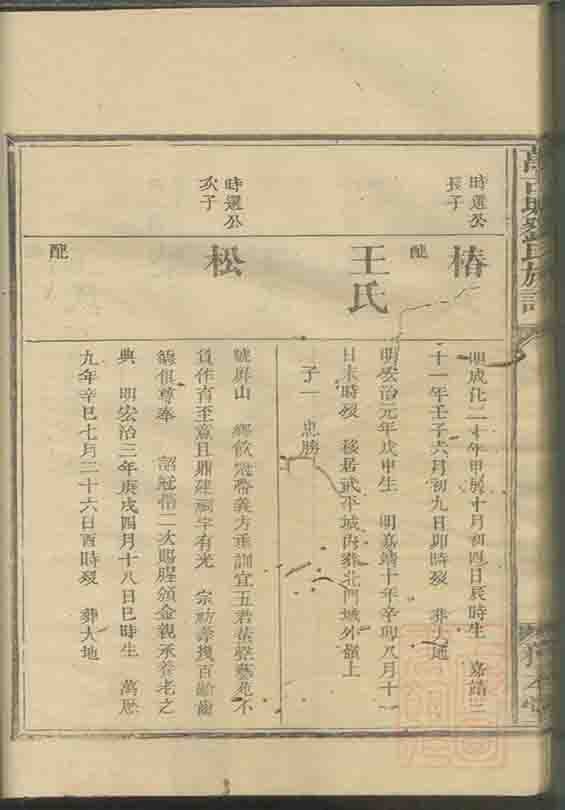 時選公
長子
椿
配
明成化二十年甲辰十月初四日辰時生　嘉靖三
十一年壬子六月初九日卯時歿　葬大地
王氏
明宏治元年戊申生　明嘉靖十年辛卯八月十一
日未時歿　移居武平城內葬北門城外嶺上
子一　忠勝
時選公
次子
松
配
號屏山　鄉飲冠帶義方垂訓宜五君
至意且鼎建祠宇有光　宗祊壽幾百齡齒
德俱尊奉　詔冠帶二次賜腥領金親承養老之
典　明宏治三年庚戌四月十八日巳時生　萬歷
九年辛巳七月二十六日酉時歿　葬大地